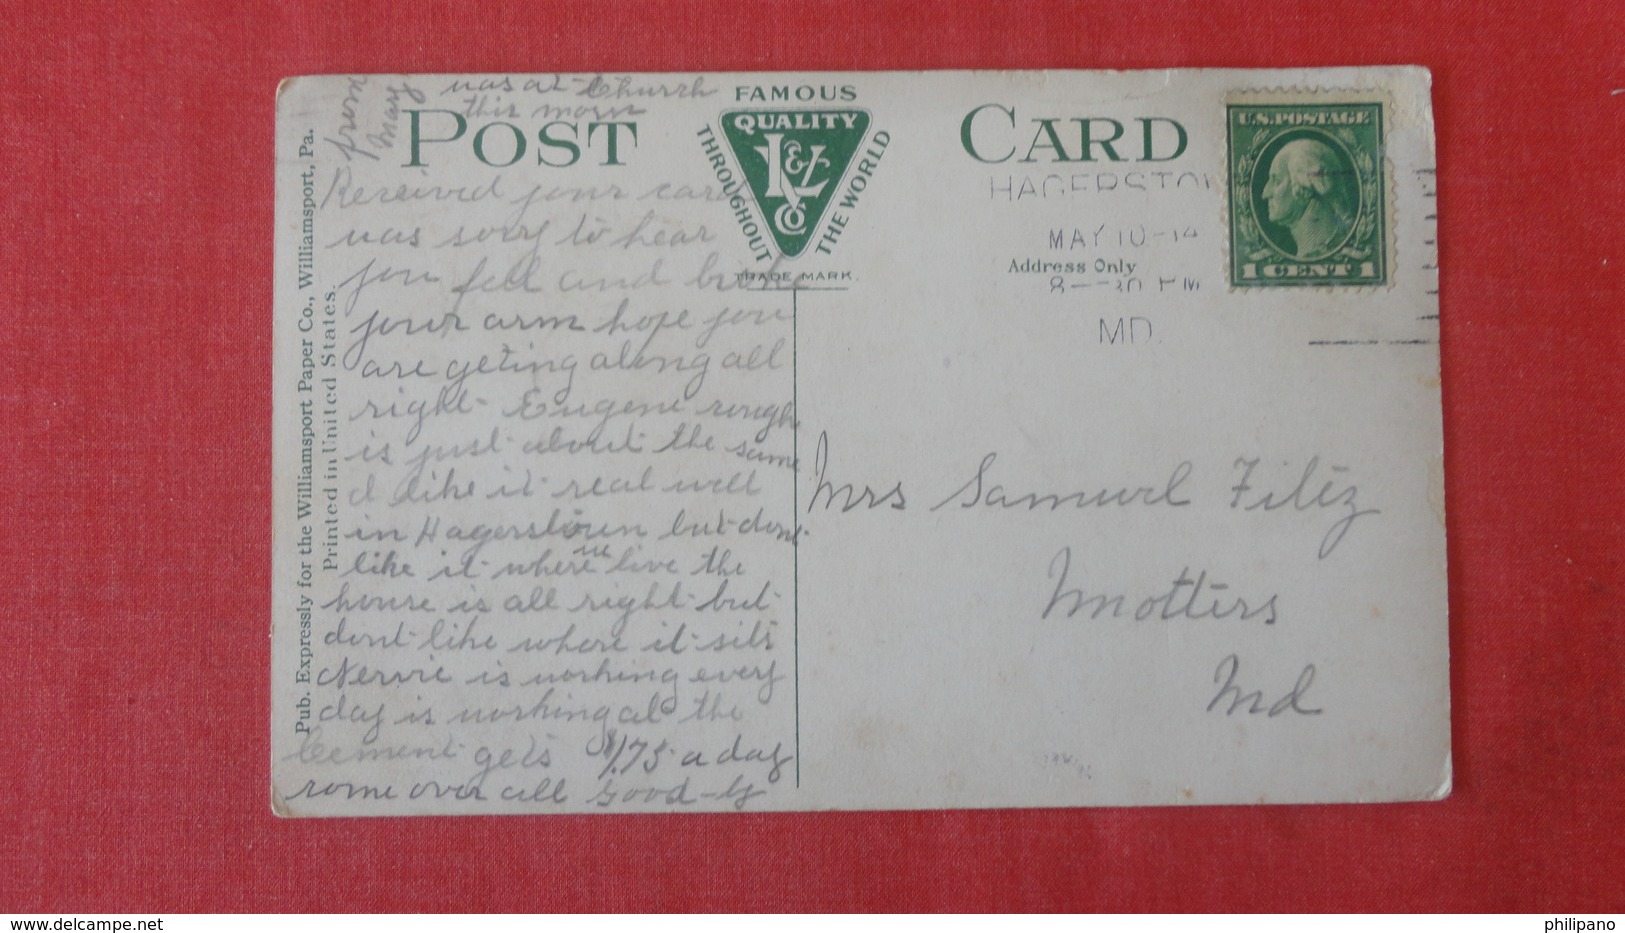 was at Church
this morn
from
Mary
POST CARD
FAMOUS
QUALITY
THROUGHOUT
THE WORLD
K & Co
TRADE MARK.
HAGERSTOW
MAY 10-14
8-30 PM
MD.
Address Only
U.S. POSTAGE
1 CENT 1
Pub. Expressly for the Williamsport Paper Co., Williamsport, Pa.
Printed in United States.
Received your card
was sorry to hear
you fell and broke
your arm hope you
are geting along all
right Eugene
is just about the same
I like it real well
in Hagerstown but dont
like it where we live the
house is all right but
dont like where it sits
is working every
day is working at the
Cement gets $1.75 a day
come over all Good-by
Mrs Samuel Fitez
Motters
Md
philipano
delcampe.net